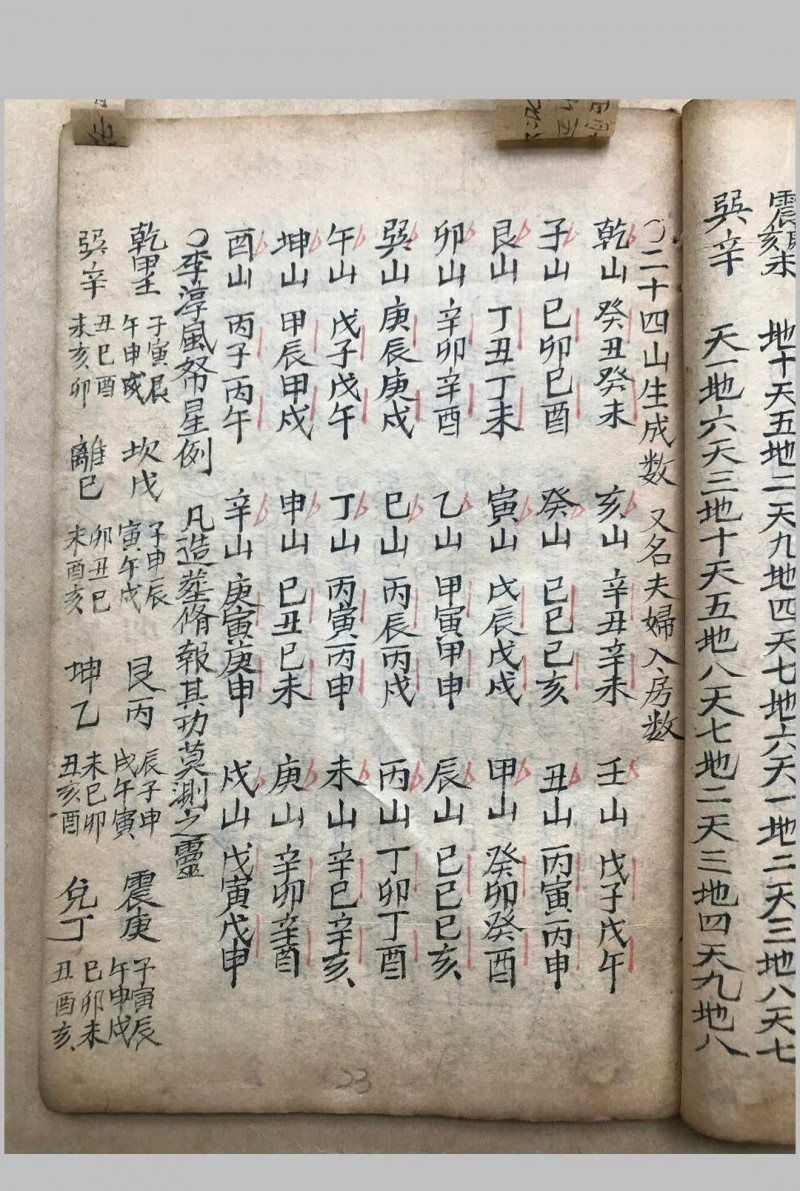 震亥未 地十天五地二天九地四天七地六天一地二天三地八天七
巽辛 天一地六天三地十天五地八天七地二天三地四天九地八
〇二十四山生成数 又名夫婦入房数
乾山 癸丑癸未 亥山 辛丑辛未 壬山 戊子戊午
子山 巳卯巳酉 癸山 己巳己亥 丑山 丙寅丙申
艮山 丁丑丁未 寅山 戊辰戊戌 甲山 癸卯癸酉
卯山 辛卯辛酉 乙山 甲寅甲申 辰山 巳巳巳亥
巽山 庚辰庚戌 巳山 丙辰丙戌 丙山 丁卯丁酉
午山 戊子戊午 丁山 丙寅丙申 未山 辛巳辛亥
坤山 甲辰甲戌 申山 巳丑巳未 庚山 辛卯辛酉
酉山 丙子丙午 辛山 庚寅庚申 戌山 戊寅戊申
〇李淳風帑星例 凡造塟脩報其功莫測之靈
乾甲 子寅辰午申戌 坎戊 子申辰寅午戌 艮丙 辰子申戌午寅 震庚 子寅辰午申戌
巽辛 丑巳酉未亥卯 離巳 卯丑巳未酉亥 坤乙 未巳卯丑亥酉 兌丁 巳卯未丑酉亥
23